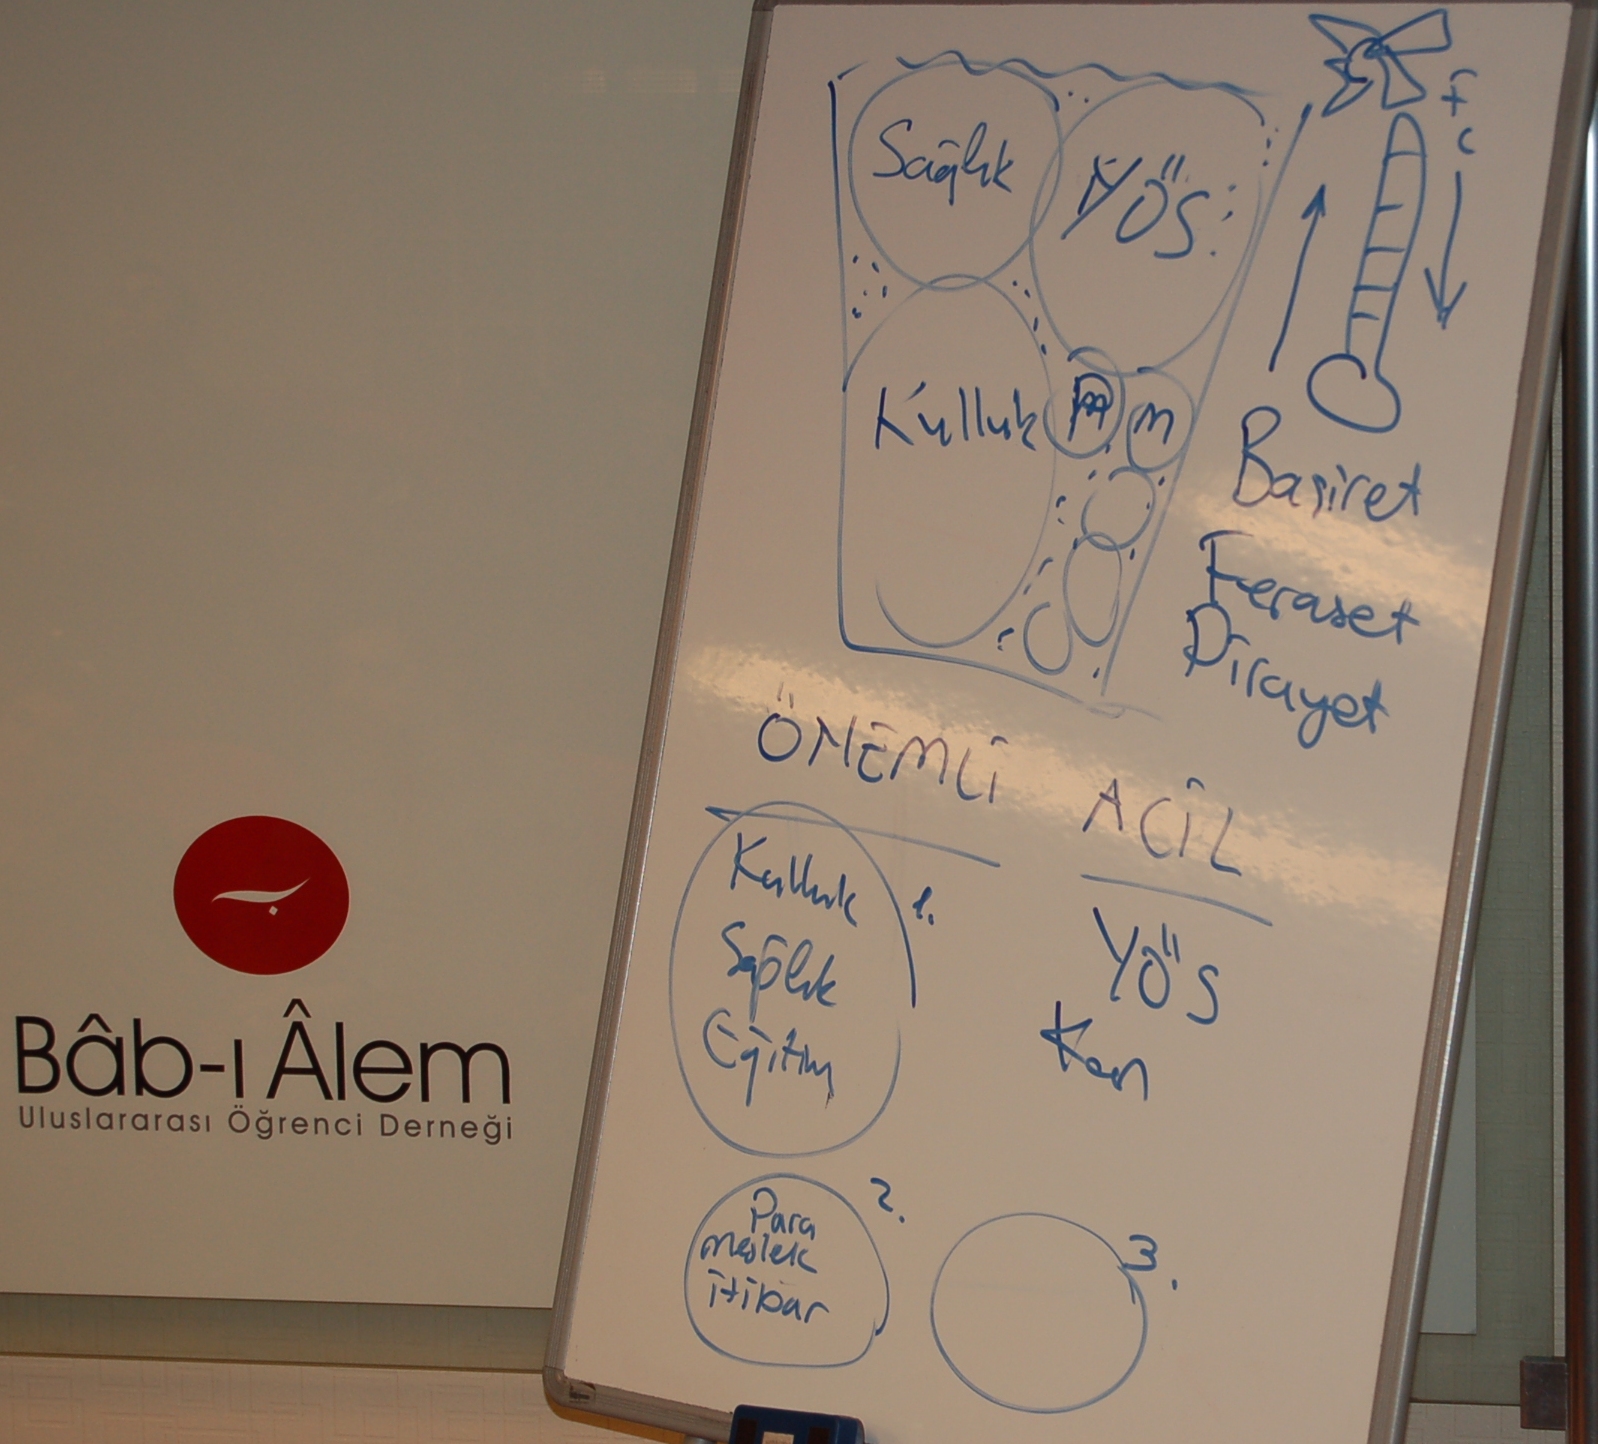 Sağlık
YÖS
Kulluk
m
F
C
Basiret
Feraset
Dirayet
ÖNEMLİ
ACİL
Kulluk
Sağlık
Eğitim
1.
YÖS
Kan
Para
meslek
itibar
2.
3.
Bâb-ı Âlem
Uluslararası Öğrenci Derneği